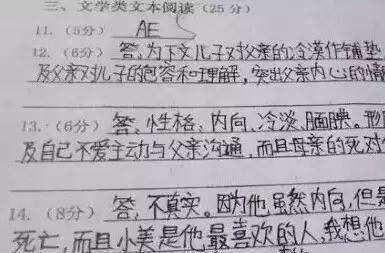 三、文学类文本阅读（25分）
11.（5分） AE
12.（6分） 答，为下文儿子对父亲的冷漠作铺垫
及父亲对儿子的包容和理解，突出父亲内心的情
13.（6分） 答，性格，内向，冷淡、腼腆。形
及自己不爱主动与父亲沟通，而且母亲的死对
14.（8分） 答，不真实。因为他虽然内向，但是
死亡，而且小美是他最喜欢的人，我想他